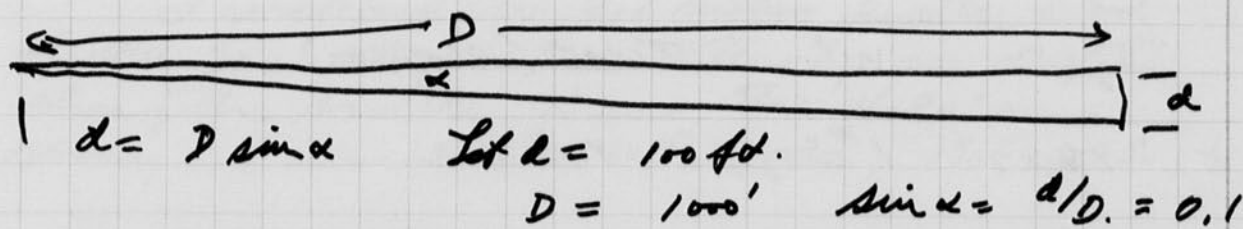 D
α
d
d = D sin α Let d = 100 ft.
D = 1000' sin α = d/D. = 0.1